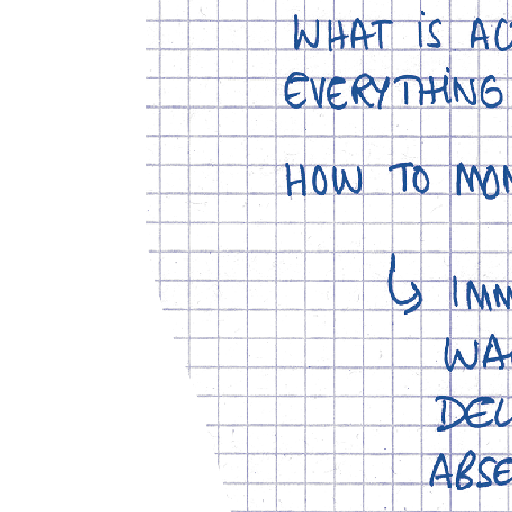 WHAT IS AC
EVERYTHING
HOW TO MON
IMM
WA
DEL
ABSE